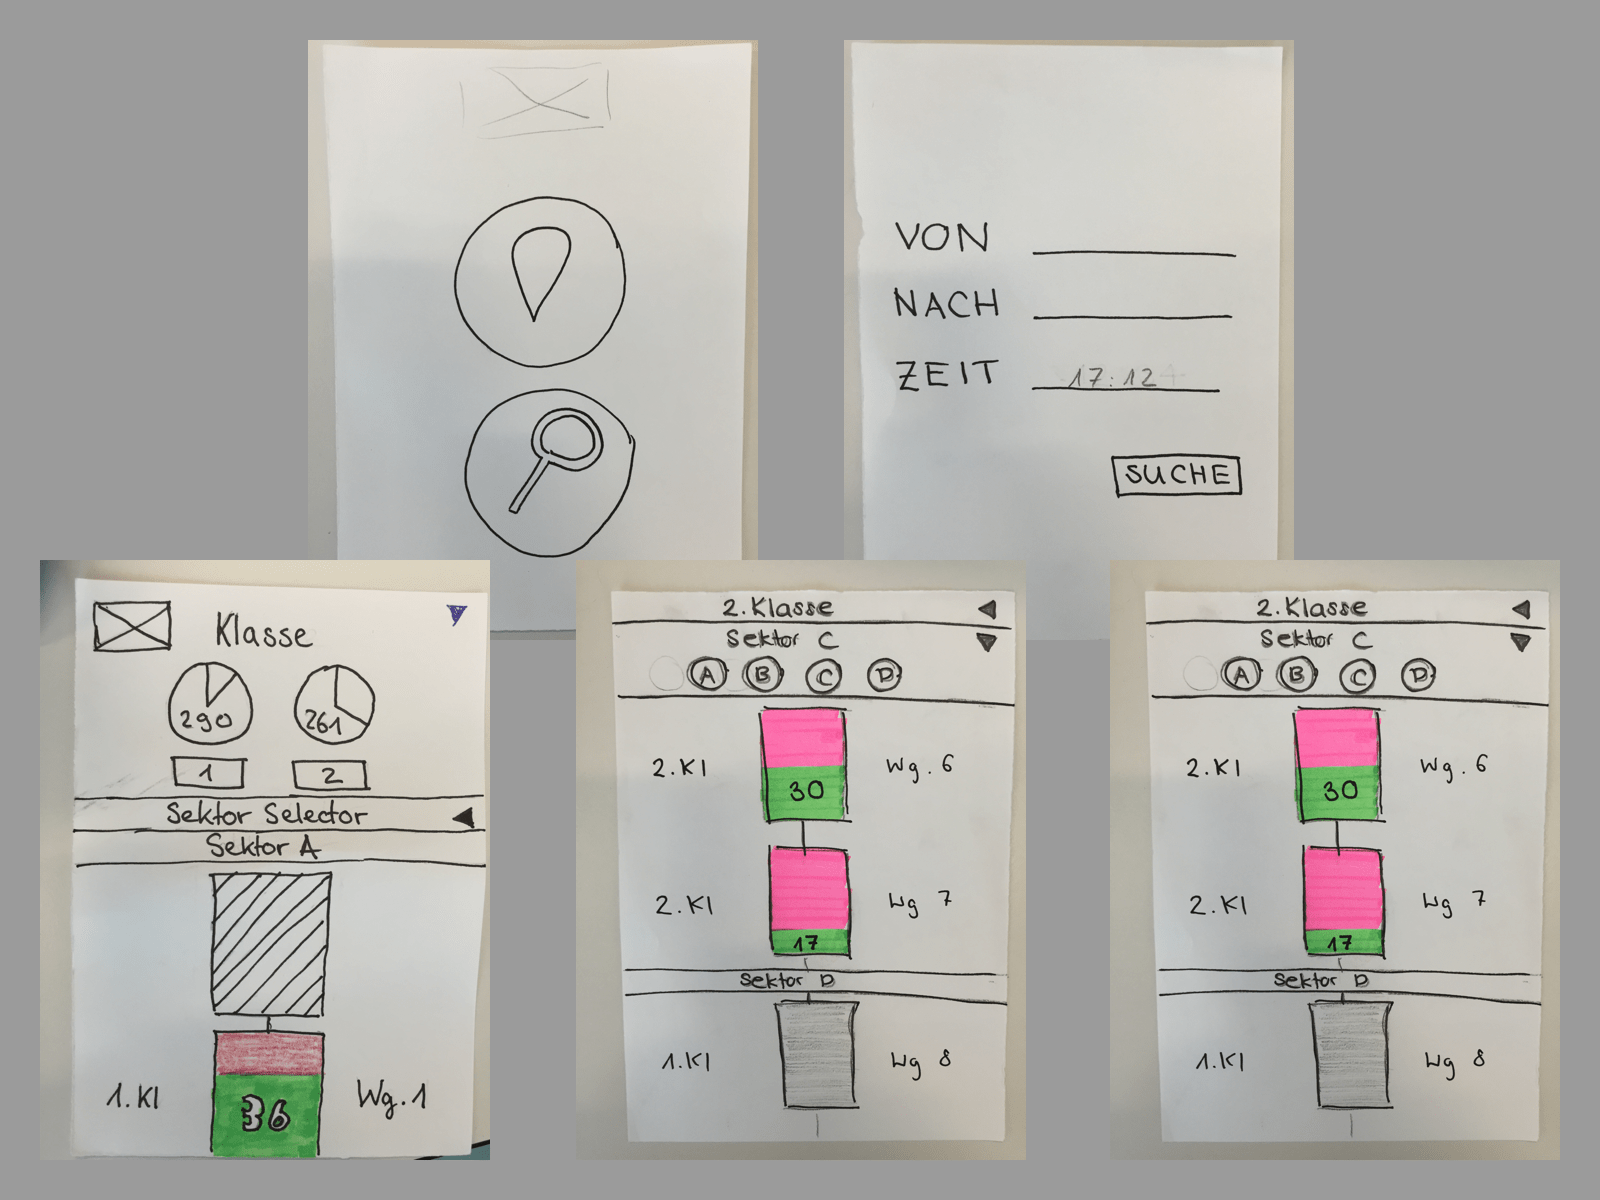 VON
NACH
ZEIT 17:12
SUCHE
Klasse
290 261
1 2
Sektor Selector
Sektor A
1. Kl 36 Wg. 1
2. Klasse
Sektor C
A B C D
2. Kl 30 Wg. 6
2. Kl 17 Wg 7
Sektor D
1. Kl Wg 8
2. Klasse
Sektor C
A B C D
2. Kl 30 Wg. 6
2. Kl 17 Wg 7
Sektor D
1. Kl Wg 8